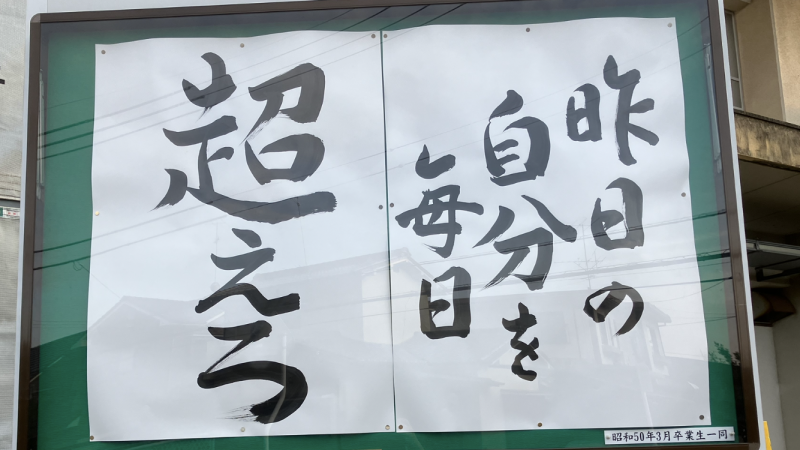 昨日の
自分を
毎日
超えろ
昭和50年3月卒業生一同